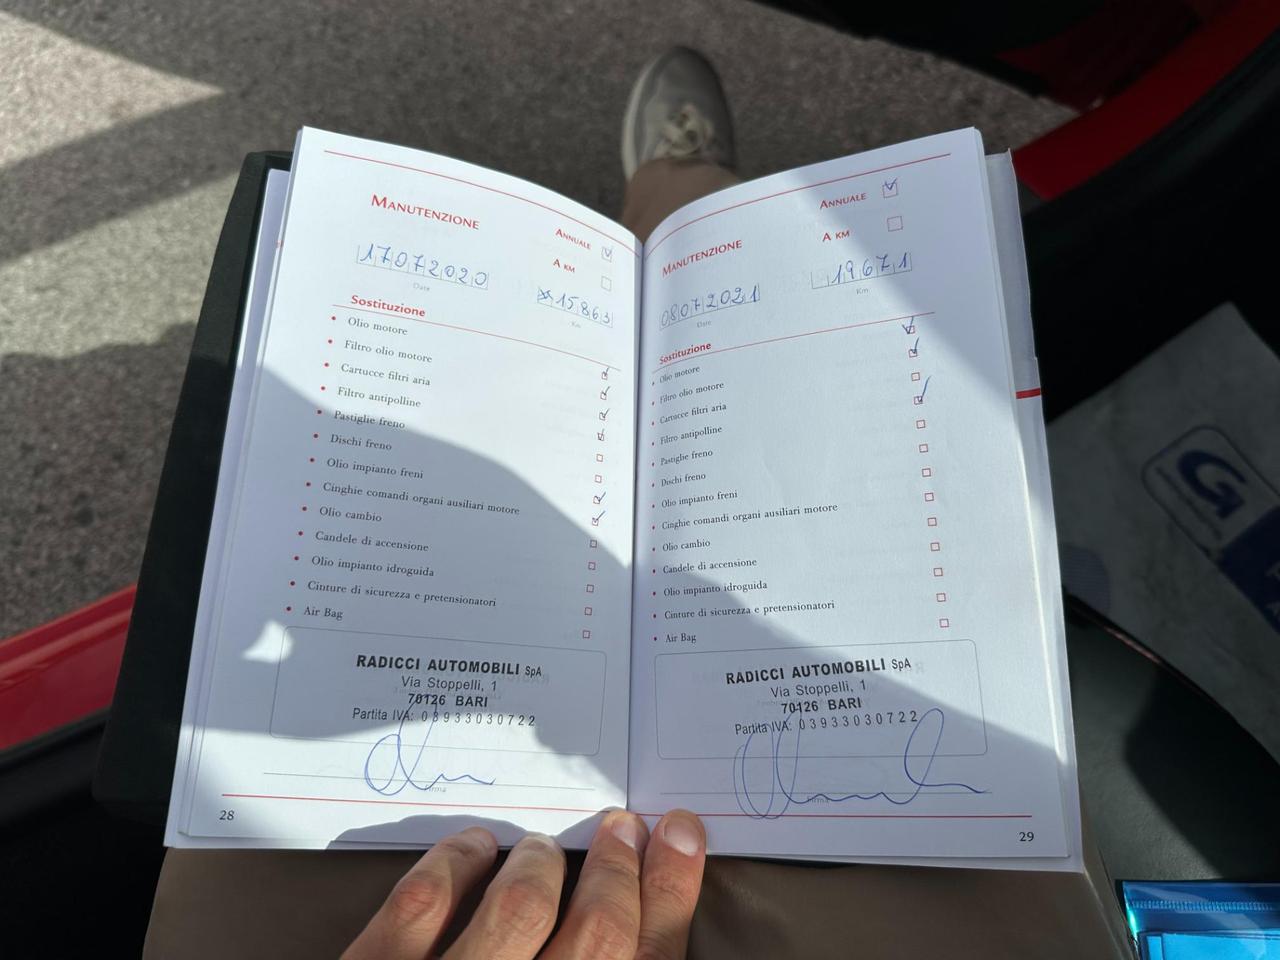 MANUTENZIONE
ANNUALE
A KM
17072020
15863
Date
Km
Sostituzione
• Olio motore
• Filtro olio motore
• Cartucce filtri aria
• Filtro antipolline
• Pastiglie freno
• Dischi freno
• Olio impianto freni
• Cinghie comandi organi ausiliari motore
• Olio cambio
• Candele di accensione
• Olio impianto idroguida
• Cinture di sicurezza e pretensionatori
• Air Bag
RADICCI AUTOMOBILI SpA
Via Stoppelli, 1
70126 BARI
Partita IVA: 03933030722
Firma
28
MANUTENZIONE
ANNUALE
A KM
08072021
19671
Date
Km
Sostituzione
• Olio motore
• Filtro olio motore
• Cartucce filtri aria
• Filtro antipolline
• Pastiglie freno
• Dischi freno
• Olio impianto freni
• Cinghie comandi organi ausiliari motore
• Olio cambio
• Candele di accensione
• Olio impianto idroguida
• Cinture di sicurezza e pretensionatori
• Air Bag
RADICCI AUTOMOBILI SpA
Via Stoppelli, 1
70126 BARI
Partita IVA: 03933030722
Firma
29